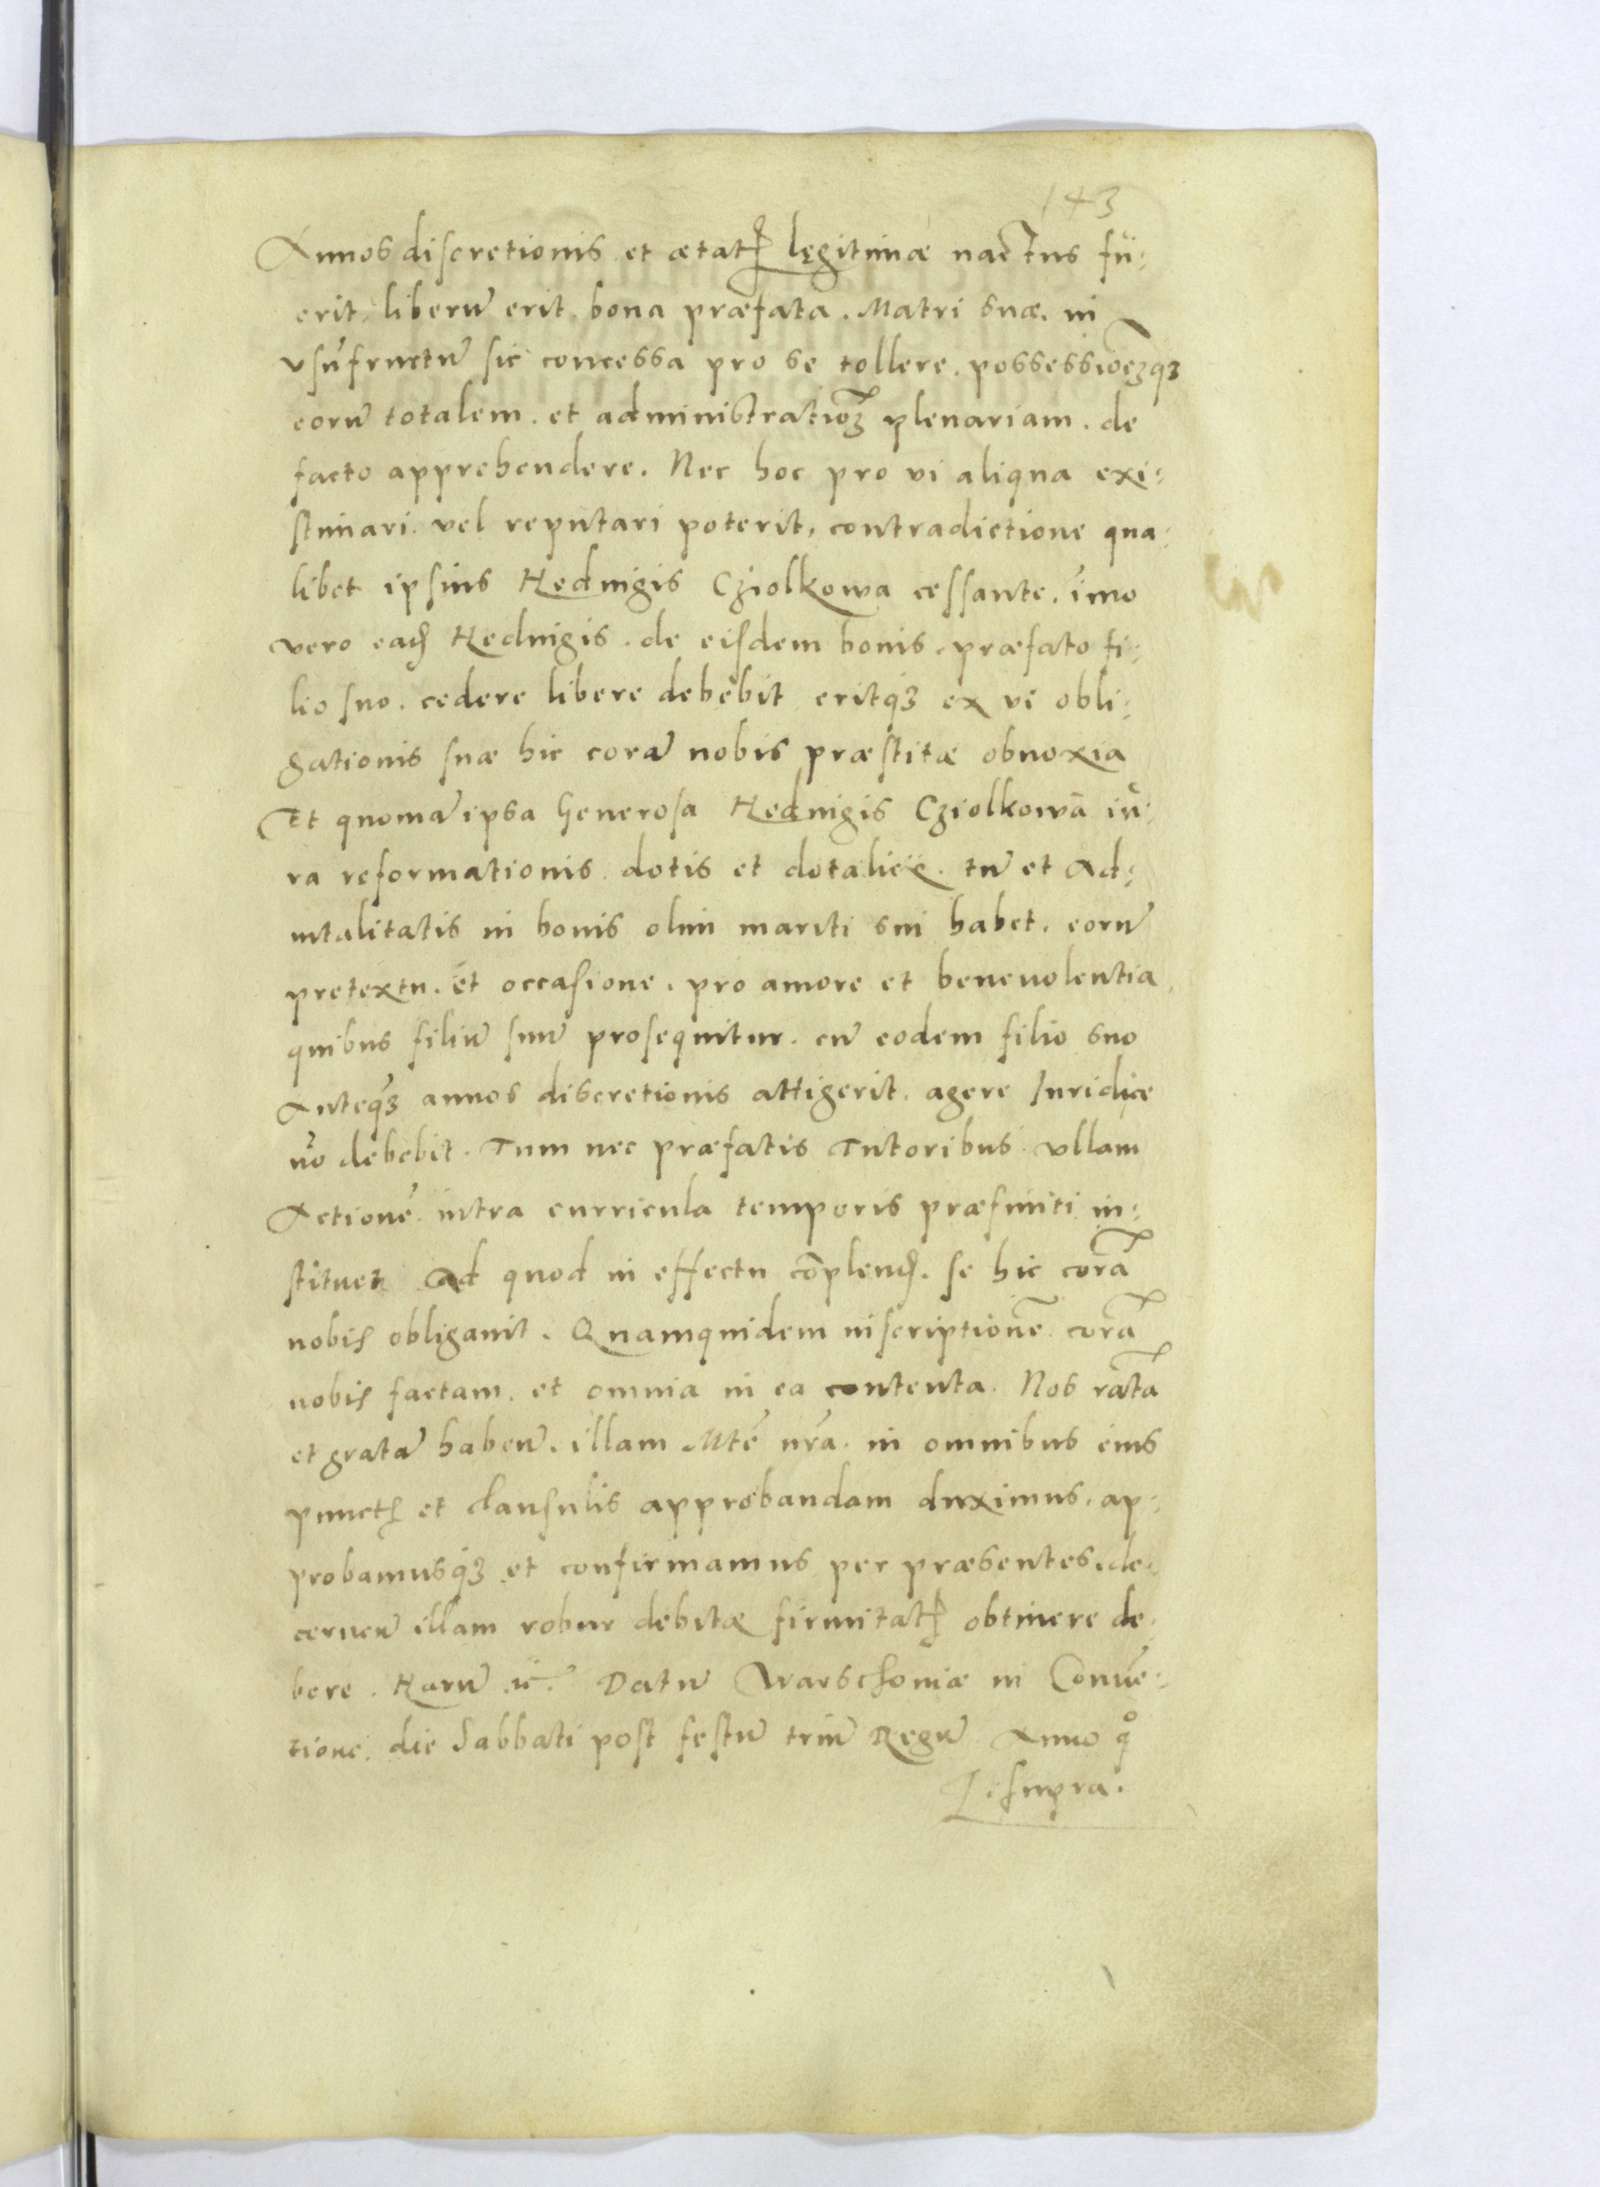 143
Annos discretionis et ætatꝭ lęgitimæ nactus fu:
erit, liberū erit bona præfata. Matri suæ. in
vsūfructū sic concessa pro se tollere. possessiōeꝫqꝫ
eorū totalem. et administratioꝫ plenariam. de
facto apprehendere. Nec hoc pro vi aliqua exi:
stimari. vel reputari poterit, contradictione qua:
libet ipsius Heduigis Cziolkowa cessante. imo
vero eadꝭ Heduigis. de eisdem bonis. præfato fi:
lio suo. cedere libere debebit eritqꝫ ex vi obli:
gationis suæ hic corā nobis præstitæ obnoxia
Et quoniā ipsa Generosa Heduigis Cziolkowa iu:
ra reformationis dotis et dotalicii. tū et Ad:
uitalitatis in bonis olim mariti sui habet. eorū
pretextu. et occasione. pro amore et beneuolentia
quibus filiū suū prosequitur. cū eodem filio suo
Anteqꝫ annos discretionis attigerit. agere Iuridice
nō debebit. Tum nec præfatis Tutoribus vllam
Actionē intra curricula temporis præfiniti in:
stituet Ad quod in effectu cōplendꝭ. se hic corā
nobis obligauit. Quamquidem inscriptionē corā
nobis factam. et omnia in ea contenta. Nos ratā
et gratā habeñ. illam Mtē nrā. in omnibus eius
punctꝭ et clausulis approbandam duximus. ap:
probamusqꝫ et confirmamus per præsentes. de:
cerneñ illam robur debitæ firmitatꝭ obtinere de:
bere. Harū ꝛc. Datū Warschouiæ in Conuē:
tione. die Sabbati post festū triū Regū Anno qͦ
supra.